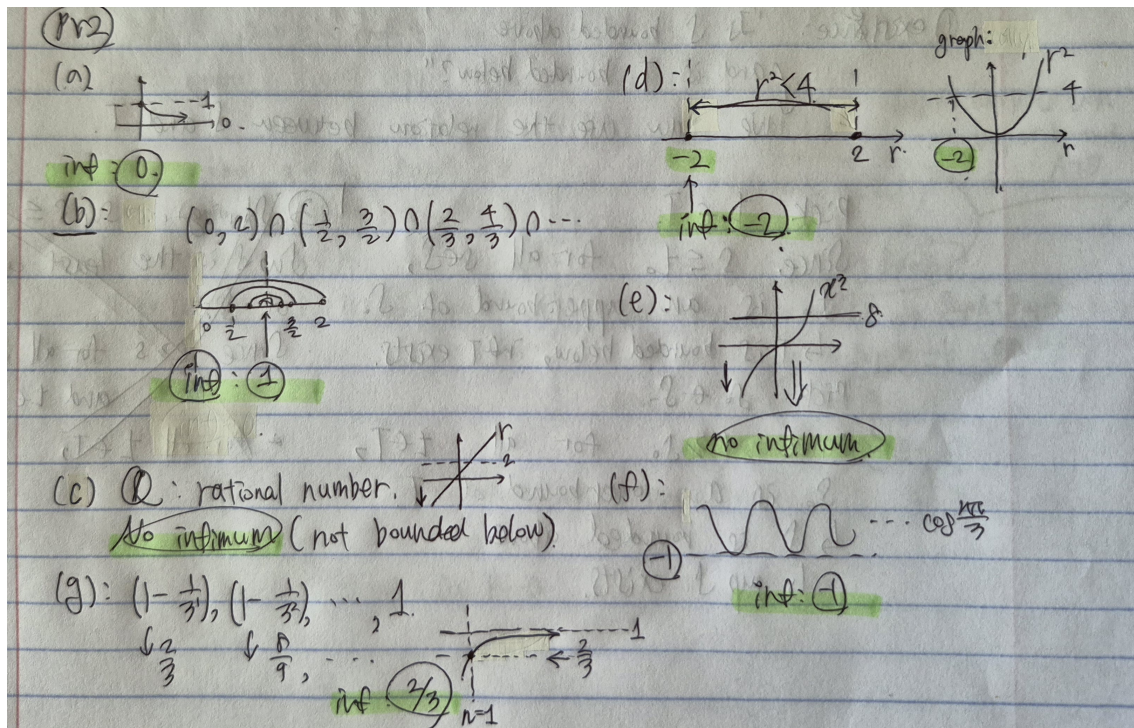 Pr2
(a)
1
0
inf : 0.
(b): (0, 2) ∩ (1/2, 3/2) ∩ (2/3, 4/3) ∩ ⋯
0 1/2 3/2 2
inf : 1
(c) Q : rational number.
r
2
No infimum (not bounded below)
(g): (1 - 1/3¹), (1 - 1/3²), ⋯, 1
↓ 2/3 ↓ 8/9, ⋯
1
← 2/3
n=1
inf : 2/3
(d):
r²<4
-2 2 r.
inf : -2
graph:
r²
4
-2 r
(e):
x³
8
no infimum
(f):
⋯ cos nπ/3
-1
inf : -1